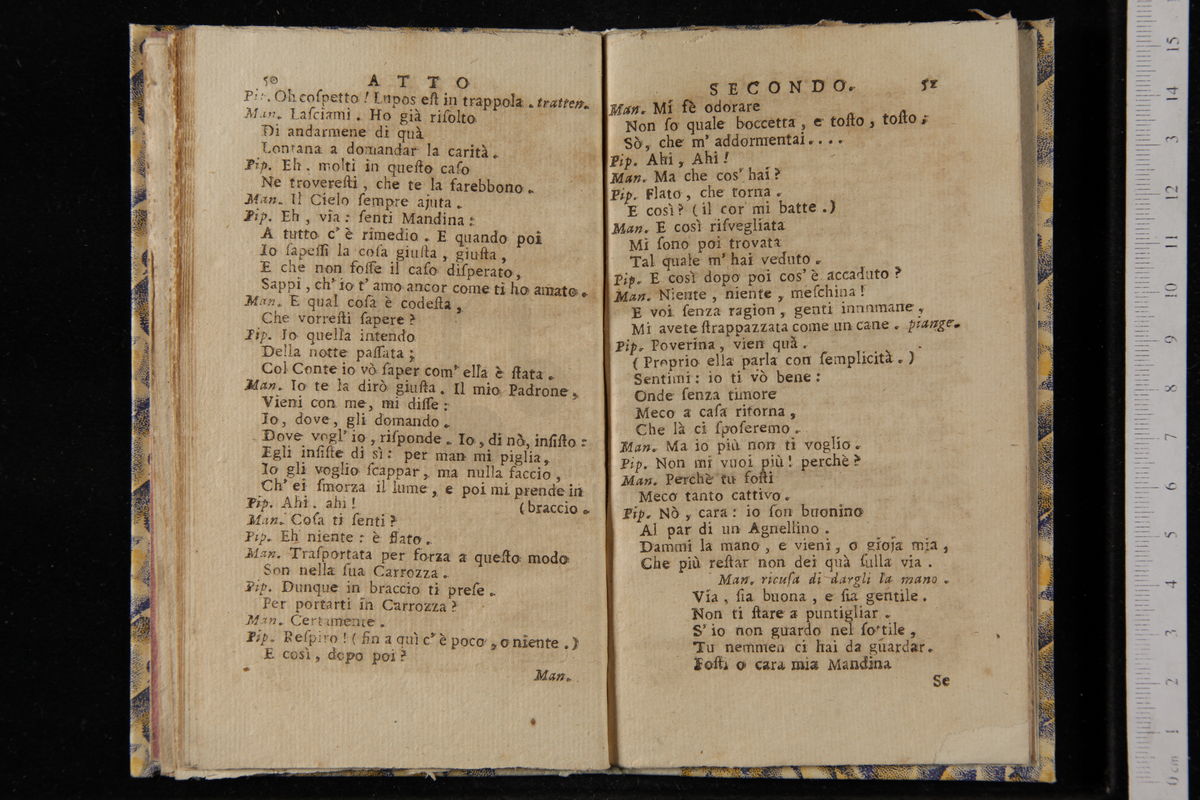 50 ATTO
Pip. Oh coſpetto ! Lupos eſt in trappola . tratten.
Man. Laſciami . Ho già riſolto
Di andarmene di quà
Lontana a domandar la carità .
Pip. Eh . molti in queſto caſo
Ne trovereſti , che te la farebbono .
Man. Il Cielo ſempre ajuta .
Pip. Eh , via : ſenti Mandina :
A tutto c' è rimedio . E quando poi
Io ſapeſſi la coſa giuſta , giuſta ,
E che non foſſe il caſo diſperato ,
Sappi , ch' io t' amo ancor come ti ho amato .
Man. E qual coſa è codeſta ,
Che vorreſti ſapere ?
Pip. Io quella intendo
Della notte paſſata ;
Col Conte io vò ſaper com' ella è ſtata .
Man. Io te la dirò giuſta . Il mio Padrone ,
Vieni con me , mi diſſe :
Io , dove , gli domando .
Dove vogl' io , riſponde . Io , di nò , inſiſto :
Egli inſiſte di sì : per man mi piglia ,
Io gli voglio ſcappar , ma nulla faccio ,
Ch' ei ſmorza il lume , e poi mi prende in
Pip. Ahi . ahi ! (braccio .
Man. Coſa ti ſenti ?
Pip. Eh niente : è flato .
Man. Traſportata per forza a queſto modo
Son nella ſua Carrozza .
Pip. Dunque in braccio ti preſe .
Per portarti in Carrozza ?
Man. Certamente .
Pip. Reſpiro ! ( fin a quì c' è poco , o niente . )
E così , dopo poi ?
Man.
SECONDO. 51
Man. Mi fè odorare
Non ſo quale boccetta , e toſto , toſto ;
Sò , che m' addormentai . . . .
Pip. Ahi , Ahi !
Man. Ma che cos' hai ?
Pip. Flato , che torna .
E così ? ( il cor mi batte . )
Man. E così riſvegliata
Mi ſono poi trovata
Tal quale m' hai veduto .
Pip. E così dopo poi cos' è accaduto ?
Man. Niente , niente , meſchina !
E voi ſenza ragion , genti innnmane ,
Mi avete ſtrappazzata come un cane . piange.
Pip. Poverina , vien quà .
( Proprio ella parla con ſemplicità . )
Sentimi : io ti vò bene :
Onde ſenza timore
Meco a caſa ritorna ,
Che là ci ſpoſeremo .
Man. Ma io più non ti voglio .
Pip. Non mi vuoi più ! perchè ?
Man. Perchè tu foſti
Meco tanto cattivo .
Pip. Nò , cara : io ſon buonino
Al par di un Agnellino .
Dammi la mano , e vieni , o gioja mia ,
Che più reſtar non dei quà ſulla via .
Man. ricuſa di dargli la mano .
Via , ſia buona , e ſia gentile .
Non ti ſtare a puntigliar .
S' io non guardo nel ſottile ,
Tu nemmen ci hai da guardar .
Foſti o cara mia Mandina
Se
15
14
13
12
11
10
9
8
7
6
5
4
3
2
1
0 cm